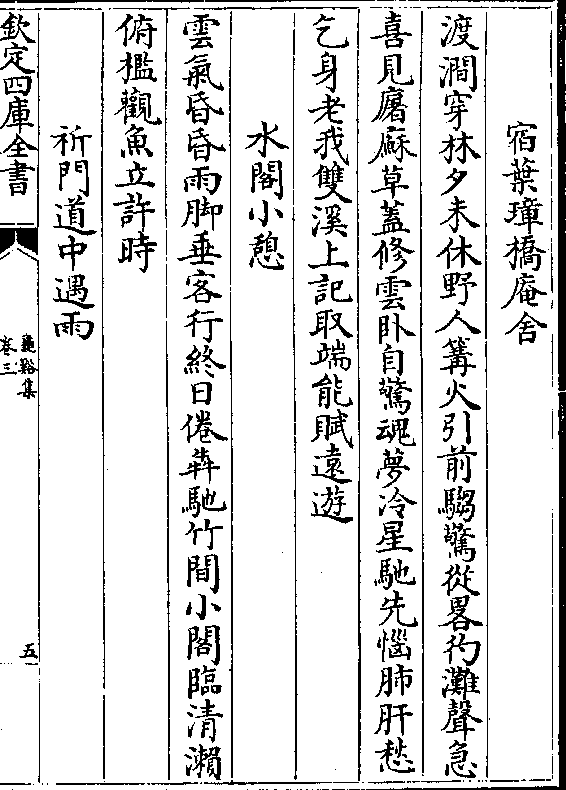 宿葉璋橋庵舍
渡澗穿林夕未休野人篝火引前騶驚從畧彴灘聲急
喜見屠蘇草蓋修雲卧自驚魂夢冷星馳先惱肺肝愁
乞身老我雙溪上記取端能賦遠遊
水閣小憩
雲氣昏昏雨脚垂客行終日倦犇馳竹間小閣臨清瀨
俯檻觀魚立許時
祈門道中遇雨
欽定四庫全書
卷三
五